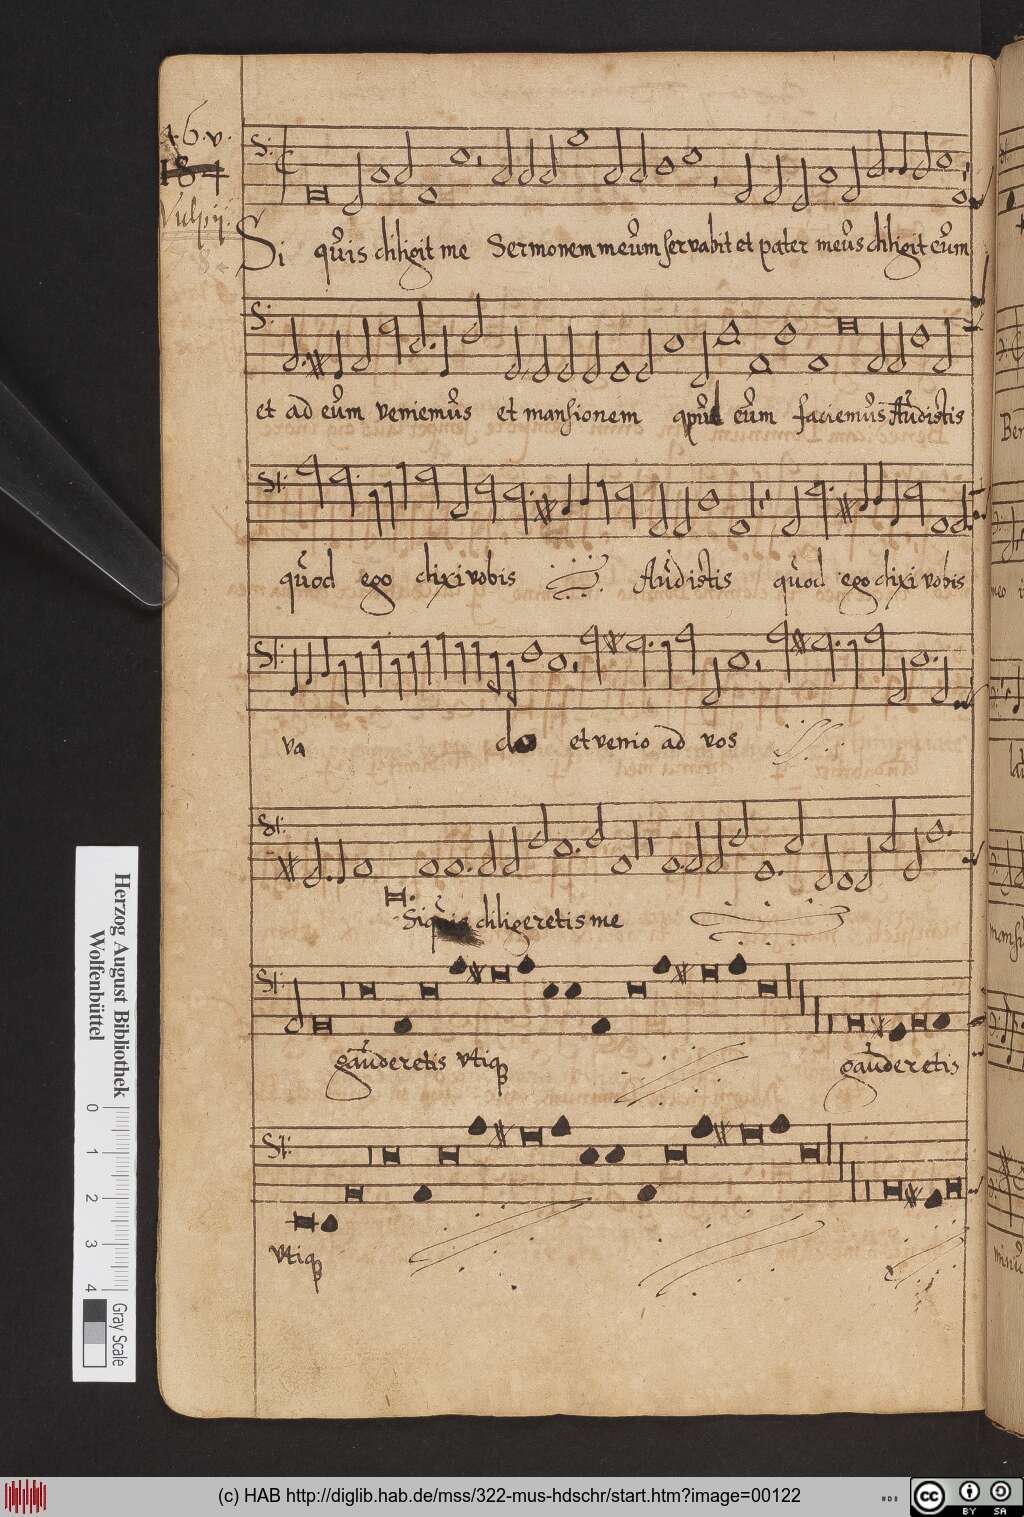 A. 6. v.
184
Vulpij.
Si quis diligit me Sermonem meum servabit et pater meus diligit eum
et ad eum veniemus et mansionem eum faciemus Audistis
quod ego dixi vobis Audistis quod ego dixi vobis
va do et venio ad vos
Si quis diligeretis me
gauderetis vtiq gauderetis
vtiq
Herzog August Bibliothek
Wolfenbüttel
0 1 2 3 4
Gray Scale
(c) HAB http://diglib.hab.de/mss/322-mus-hdschr/start.htm?image=00122
cc BY SA